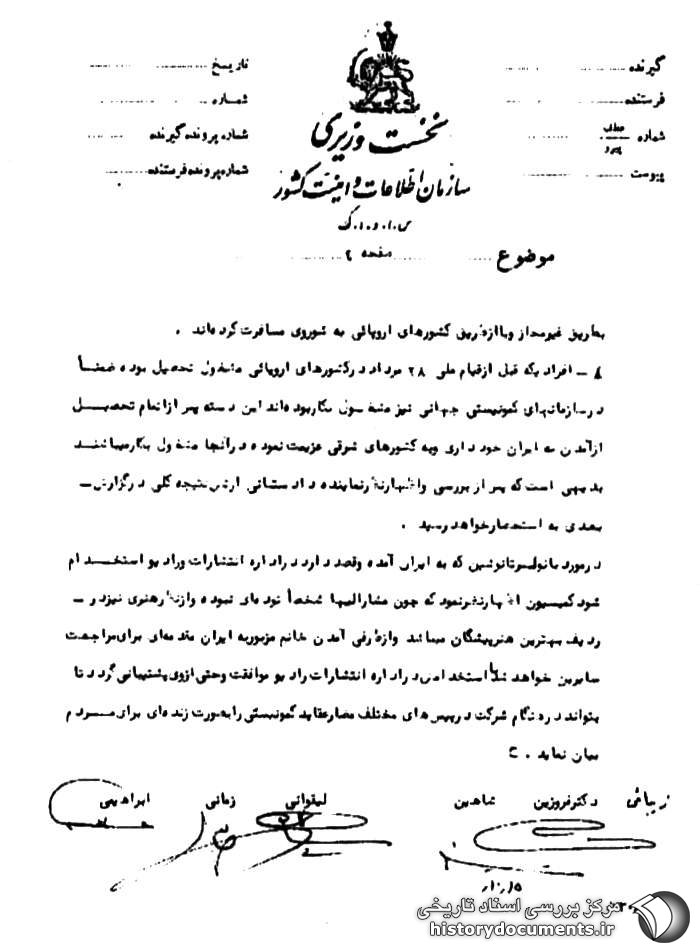 گیرنده
فرستنده
شماره عطف پیرو
پیوست
تاریخ
شماره
شماره پرونده گیرنده
شماره پرونده فرستنده
نخست وزیری
سازمان اطلاعات و امنیت کشور
س.ا.و.ا.ک
موضوع صفحه ۲
بطریق غیرمجاز ویا ازطریق کشورهای اروپائی به شوروی مسافرت کرده‌اند .
۸ ـ افرادیکه قبل ازقیام ملی ۲۸ مرداد درکشورهای اروپائی مشغول تحصیل بوده ضمناً
درسازمانهای کمونیستی جهانی نیز مشغول بکاربوده‌اند این دسته پس ازاتمام تحصیل
ازآمدن به ایران خودداری وبه کشورهای شرقی عزیمت نموده درآنجا مشغول بکارمیباشند
بدیهی است که پس از بررسی واظهارنظرنماینده دادستانی ارتش نتیجه کلی درگزارش ـ
بعدی به استحضارخواهد رسید .
درمورد بانو که به ایران آمده وقصد دارد دراداره انتشارات ورادیو استخدام
شود کمیسیون اظهارنظرنمود که چون مشارالیها شخصاً توده‌ای نبوده وازنظرهنری نیزدر ـ
ردیف بهترین هنرپیشگان میباشد وازطرفی آمدن خانم مزبوربه ایران مقدمه‌ای برای مراجعت
سایرین خواهد شد استخدامش دراداره انتشارات رادیو موافقت وحتی ازوی پشتیبانی گردد تا
بتواند درهنگام شرکت درپیس‌های مختلف مضارعقاید کمونیستی رابصورت زنده‌ای برای مردم
بیان نماید .
زیبائی دکترفروزین شاهین لیقوانی زمانی ابراهیمی
مرکز بررسی اسناد تاریخی
historydocuments.ir